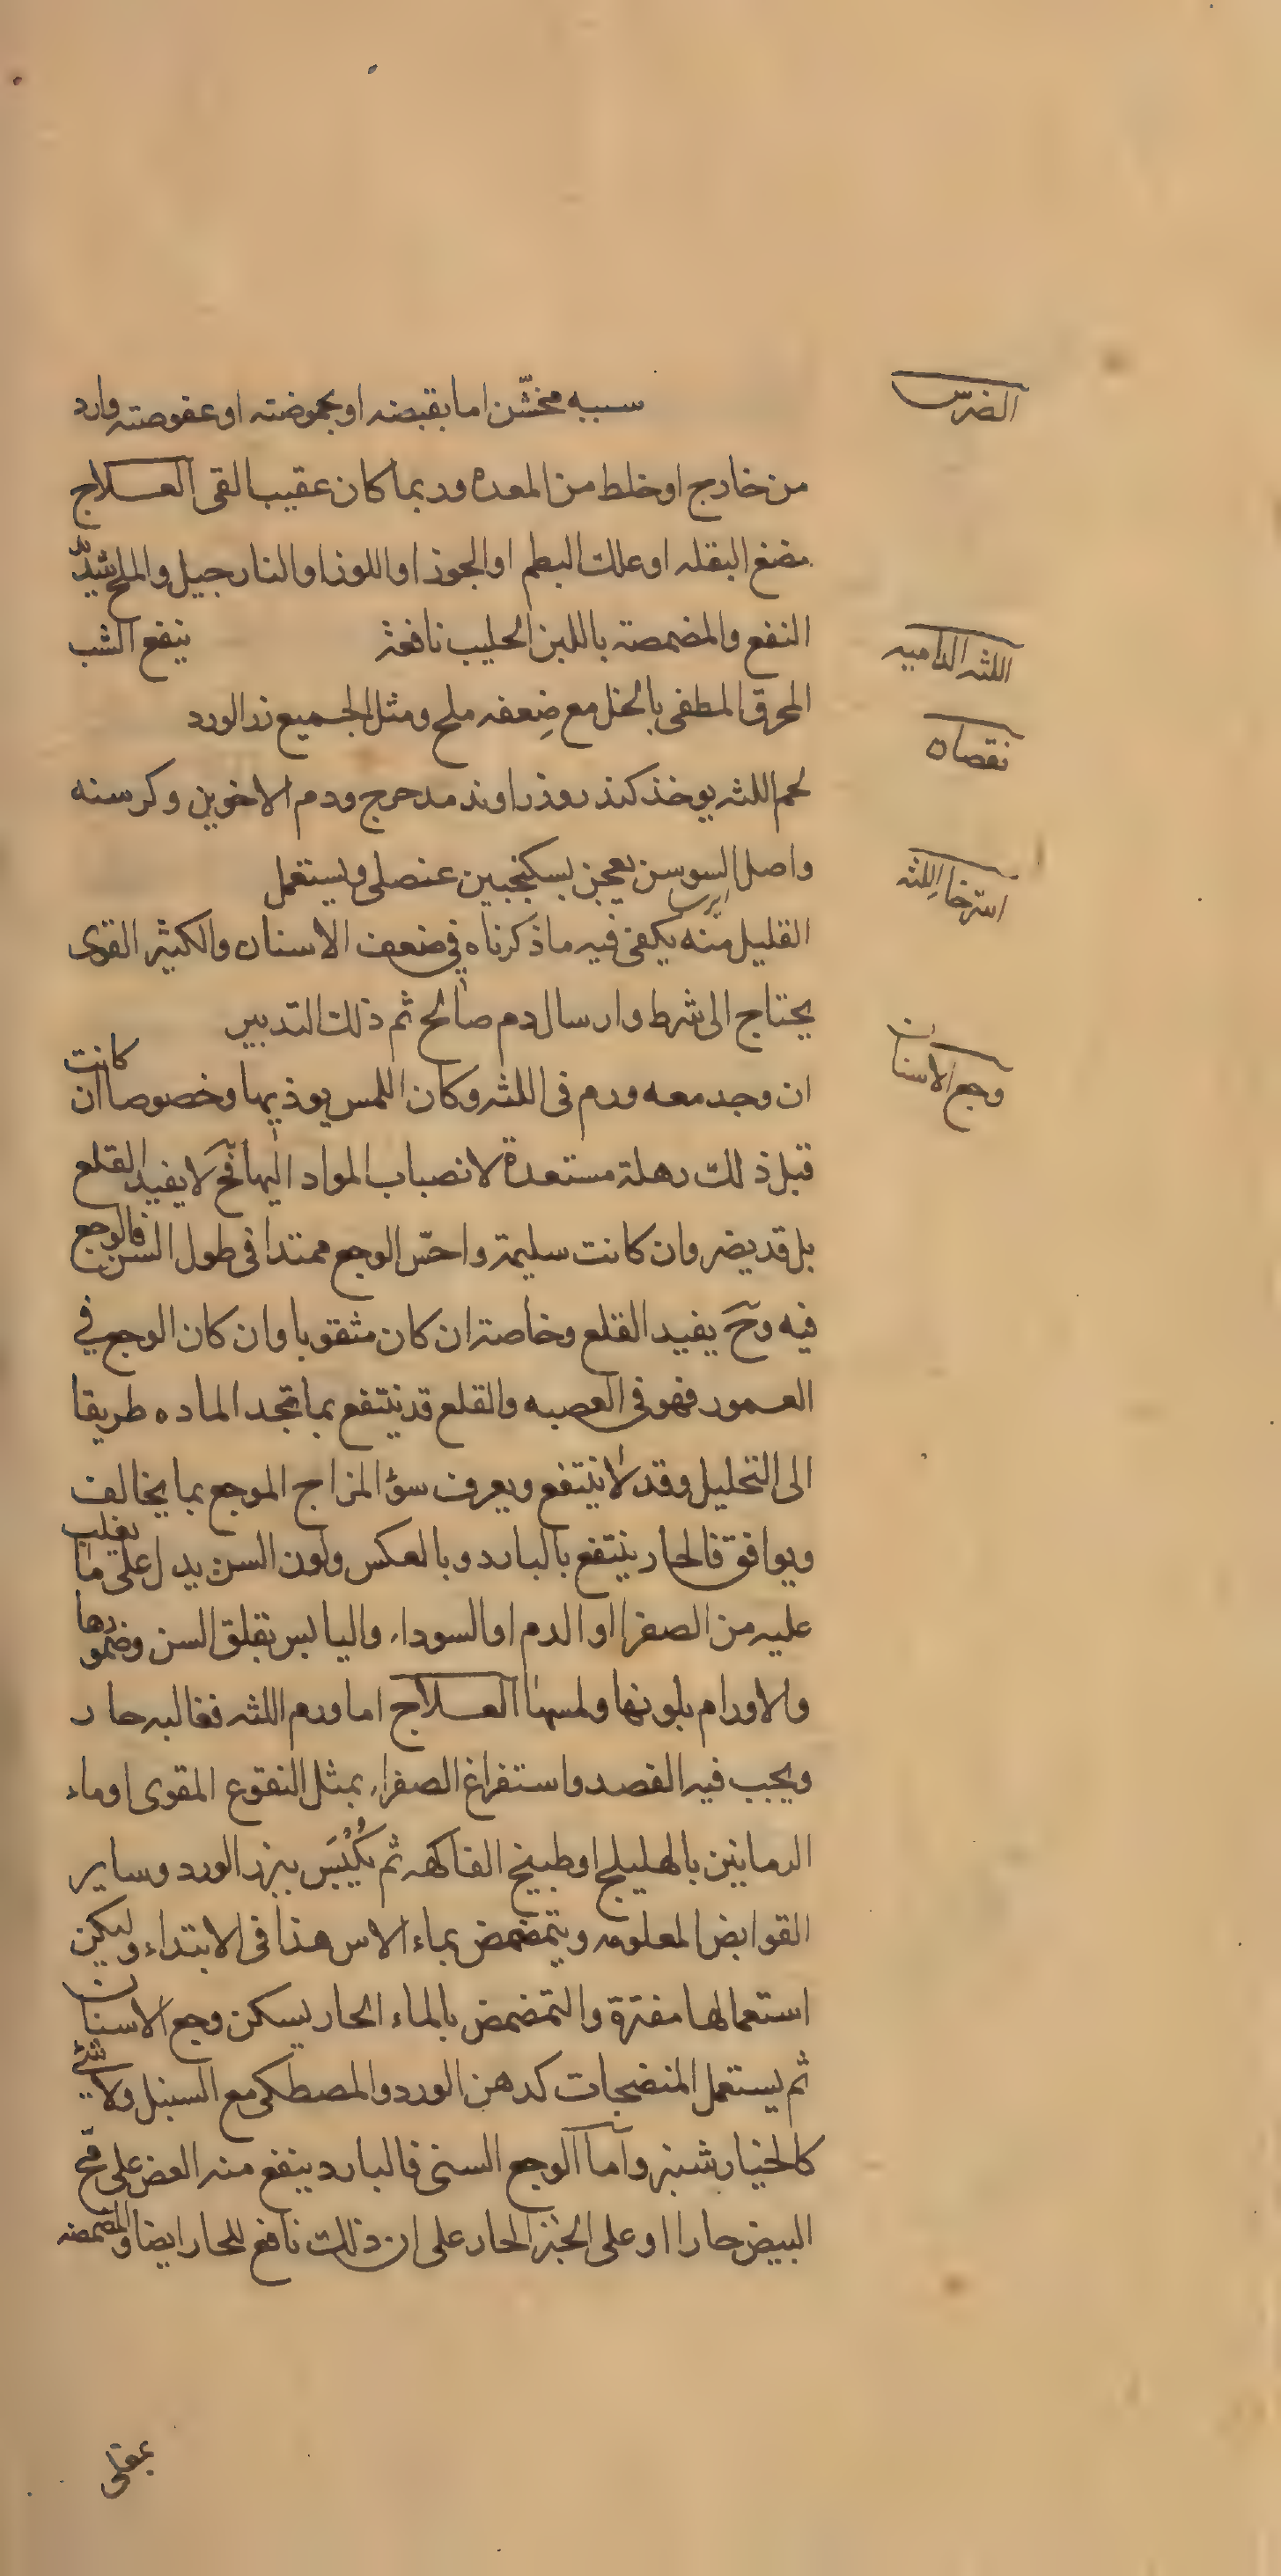 الضرس
سببه مخشّن اما بقبضه او بحموضته او عفوصته وارد
من خارج او خلط من المعده وربما كان عقيب القى العلاج
مضغ البقله او علك البطم او الجوز او اللوز او النارجيل والملح شديد
اللثه الداميه
النفع والمضمضة باللبن الحليب نافعة ينفع الشب
المحرق المطفى بالخل مع ضِعفه ملح ومثل الجميع زر الورد
نقصان
لحم اللثه يوخذ كندر وزراوند مدحرج ودم الاخوين وكرسنه
واصل السوسن يعجن بسكنجبين عنصلى ويستعمل
استرخا اللثه
القليل منه يكفى فيه ما ذكرناه في ضعف الاسنان والكثير القوى
يحتاج الى شرط وارسال دم صالح ثم ذلك التدبير
وجع الاسنان
ان وجد معه ورم فى اللثه وكان اللمس يوذيها وخصوصا ان كانت
قبل ذلك رهلة مستعدة لانصباب المواد اليها فح لا يفيد القلع
بل قد يضر وان كانت سليمة واحسّ الوجع ممتدا فى طول السن فالوجع
فيه وح يفيد القلع وخاصة ان كان مثقوبا وان كان الوجع في
العمور فهو فى العصبه والقلع قد ينتفع بما تجد الماده طريقا
الى التحليل وقد لا ينتفع ويعرف سؤ المزاج الموجع بما يخالف
ويوافق فالحار ينتفع بالبارد وبالعكس ولون السن يدل على ما يغلب
عليه من الصفرا او الدم او السوداء واليابس بقلق السن وضمورها
والاورام بلونها ولمسها العلاج اما ورم اللثه فغالبه حار
ويجب فيه الفصد واستفراغ الصفراء بمثل النقوع المقوى او ماء
الرمانين بالهليلج او طبيخ الفاكهه ثم يُكْبَس ببزر الورد وساير
القوابض المعلومه ويتمضمض بماء الاس هذا فى الابتداء وليكن
استعمالها مفترة والتمضمض بالماء الحار يسكن وجع الاسنان
ثم يستعمل المنضجات كدهن الورد والمصطكى مع السنبل ولا شئ
كالخيارشنبر واما الوجع السنى فالبارد ينفع منه العض على مح
البيض حارا او على الخبز الحار على ان ذلك نافع للحار ايضا والمضمضه